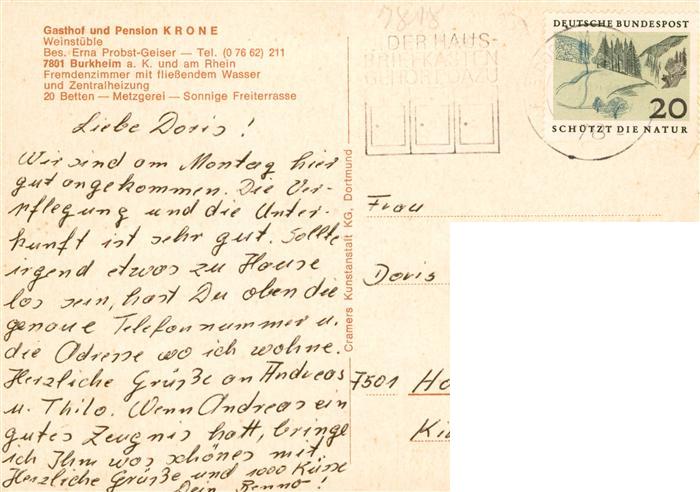 Gasthof und Pension KRONE
Weinstüble
Bes. Erna Probst-Geiser — Tel. (0 76 62) 211
7801 Burkheim a. K. und am Rhein
Fremdenzimmer mit fließendem Wasser
und Zentralheizung
20 Betten — Metzgerei — Sonnige Freiterrasse
Liebe Doris!
Wir sind am Montag hier
gut angekommen. Die Ver-
pflegung und die Unter-
kunft ist sehr gut. Sollte
irgend etwas zu Hause
los sein, hast Du oben die
genaue Telefonnummer u.
die Adresse wo ich wohne.
Herzliche Grüße an Andreas
u. Thilo. Wenn Andreas ein
gutes Zeugnis hatt, bringe
ich Ihm was schönes mit.
Herzliche Grüße und 1000 Küsse
Dein Benno!
Cramers Kunstanstalt KG, Dortmund
7818
DER HAUS-
BRIEFKASTEN
GEHÖRT DAZU
DEUTSCHE BUNDESPOST
20
SCHÜTZT DIE NATUR
Frau
Doris
7501 Ho
Ki